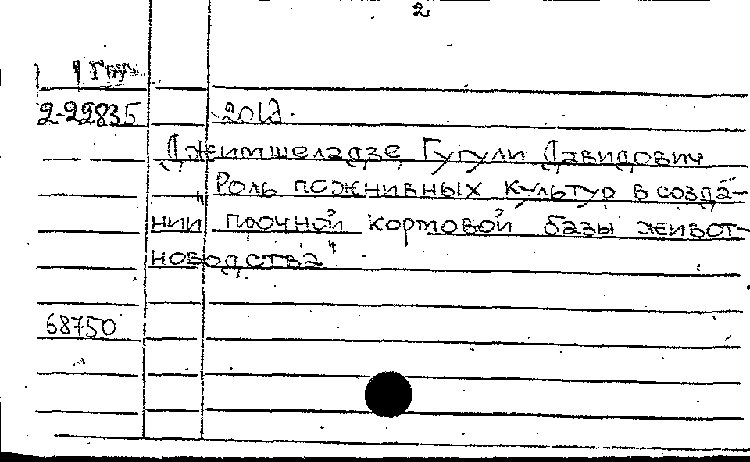 2
1 Груз
2-22835
2012.
Джимшеладзе Гугули Давидович
"Роль пожнивных культур в созда-
нии прочной кормовой базы живот-
новодства"
68750